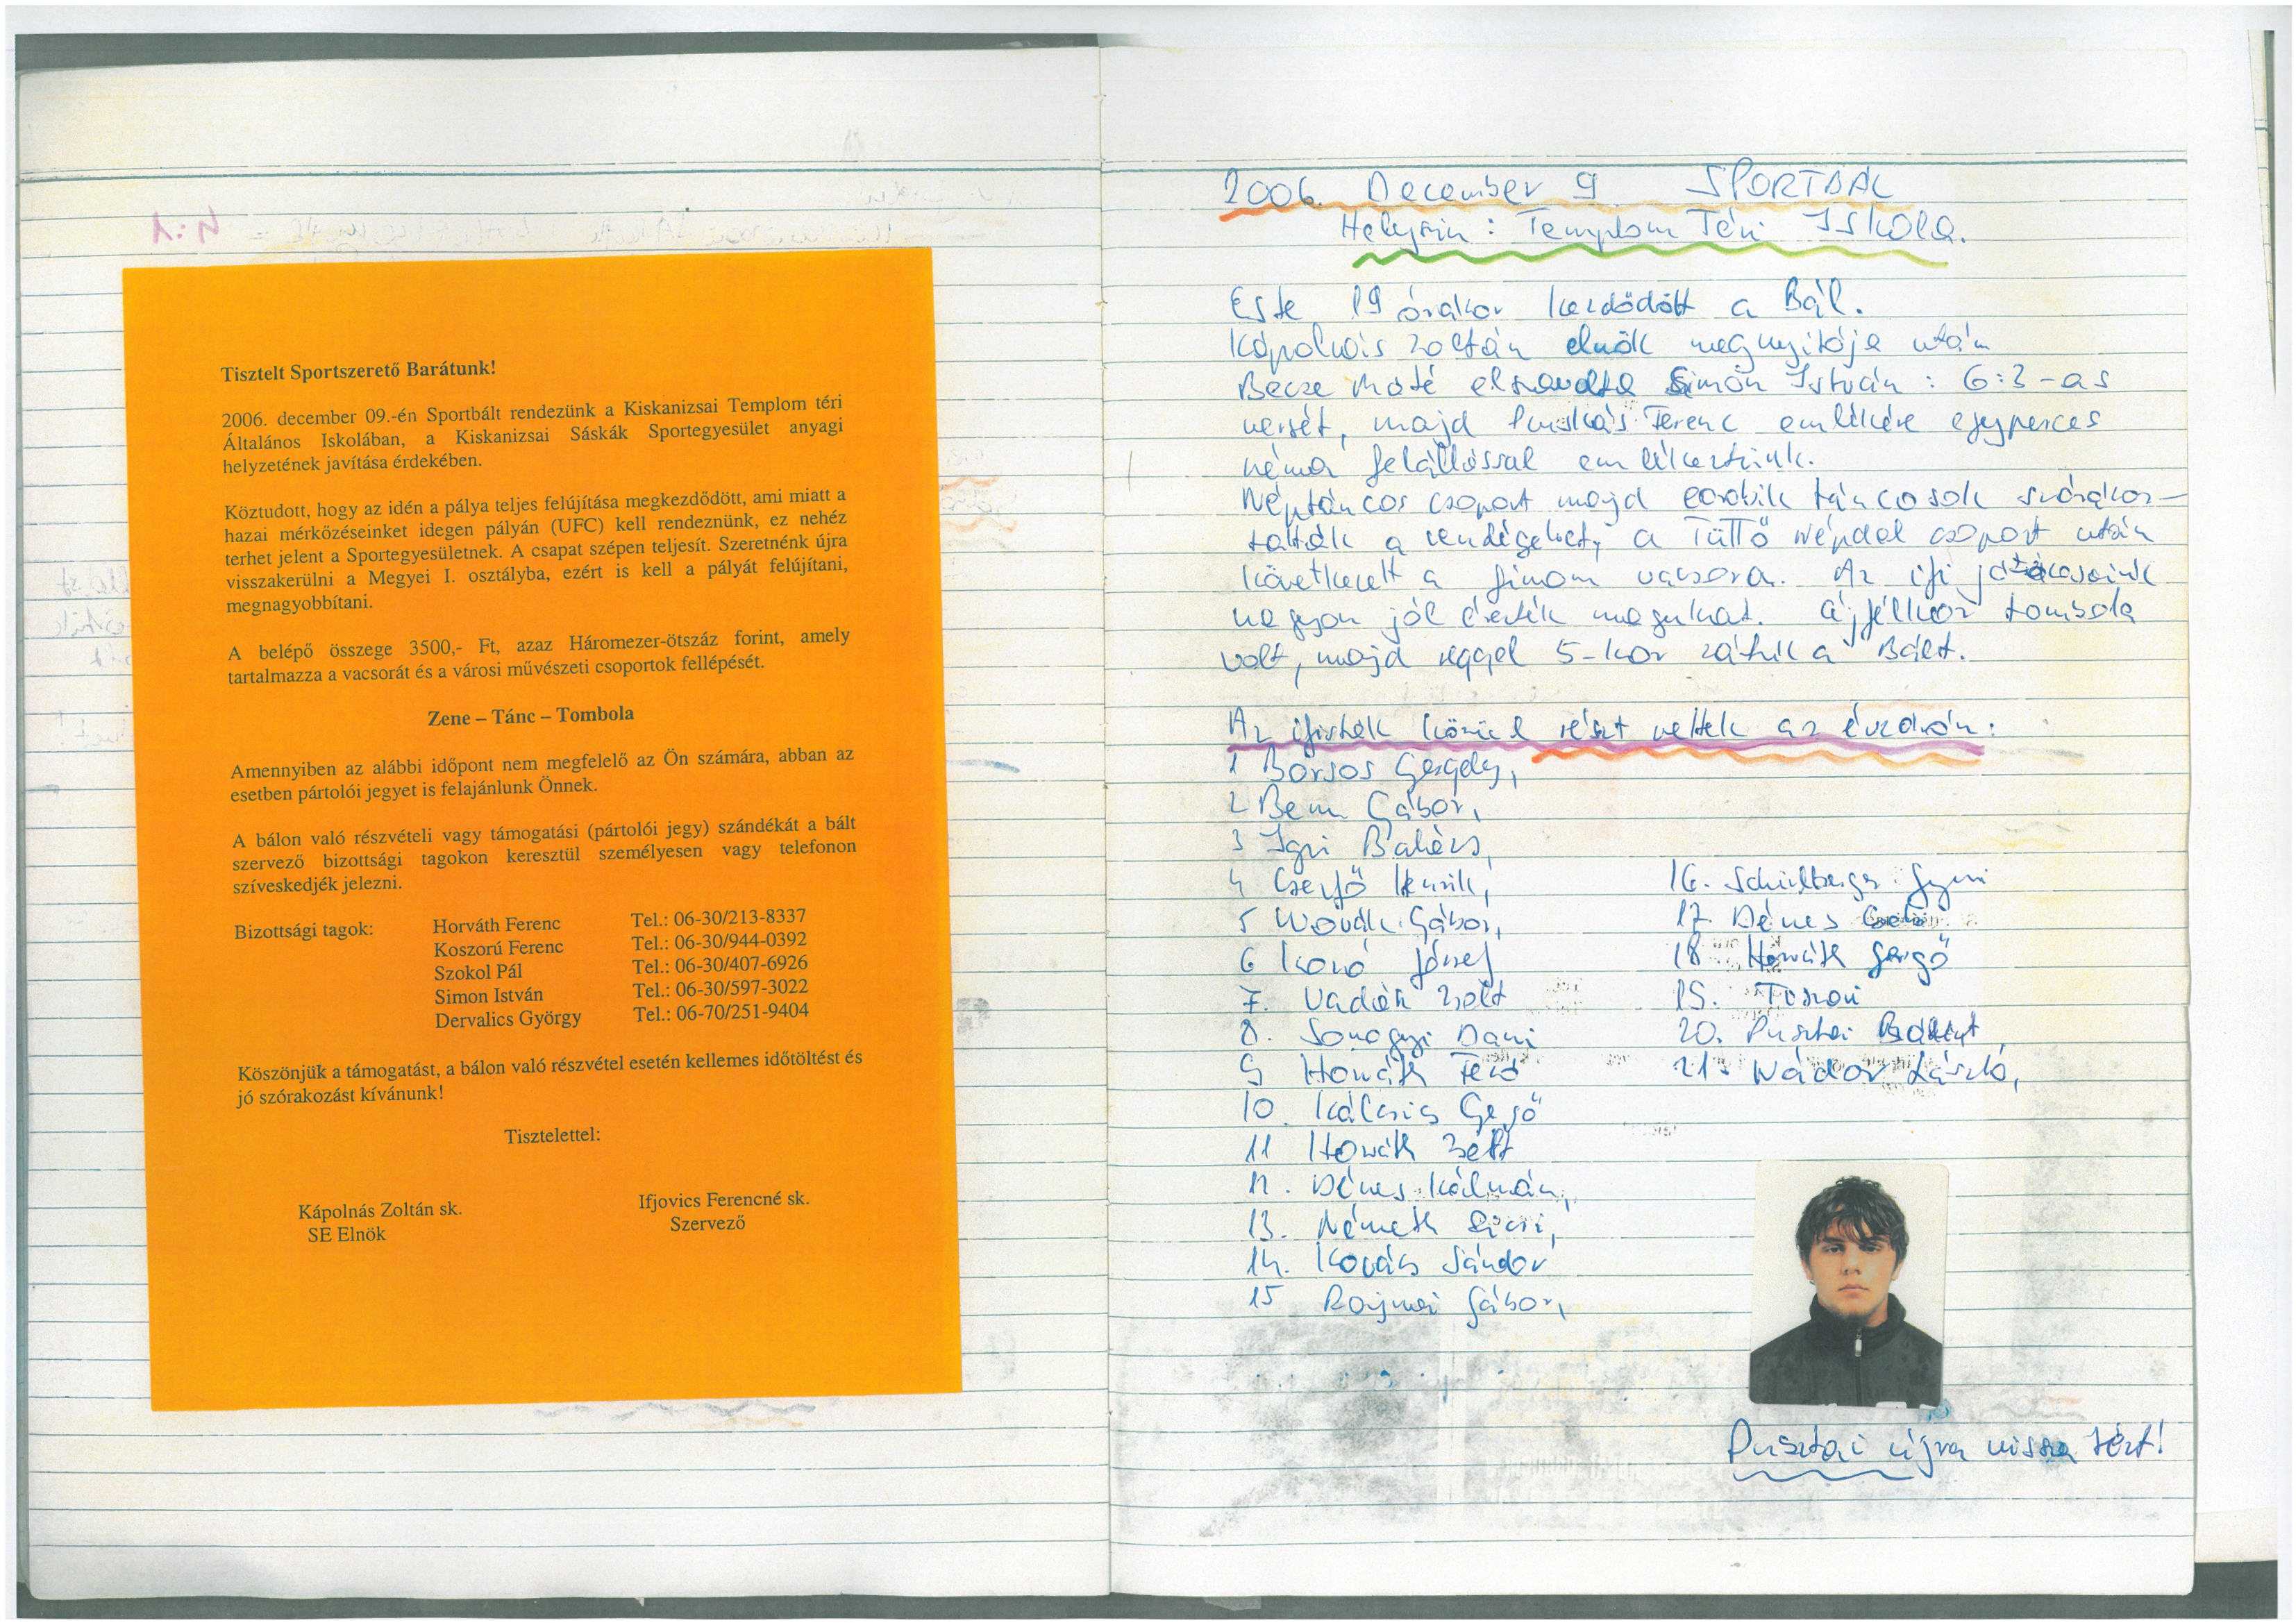 Tisztelt Sportszerető Barátunk!
2006. december 09.-én Sportbált rendezünk a Kiskanizsai Templom téri
Általános Iskolában, a Kiskanizsai Sáskák Sportegyesület anyagi
helyzetének javítása érdekében.
Köztudott, hogy az idén a pálya teljes felújítása megkezdődött, ami miatt a
hazai mérkőzéseinket idegen pályán (UFC) kell rendeznünk, ez nehéz
terhet jelent a Sportegyesületnek. A csapat szépen teljesít. Szeretnénk újra
visszakerülni a Megyei I. osztályba, ezért is kell a pályát felújítani,
megnagyobbítani.
A belépő összege 3500,- Ft, azaz Háromezer-ötszáz forint, amely
tartalmazza a vacsorát és a városi művészeti csoportok fellépését.
Zene – Tánc – Tombola
Amennyiben az alábbi időpont nem megfelelő az Ön számára, abban az
esetben pártolói jegyet is felajánlunk Önnek.
A bálon való részvételi vagy támogatási (pártolói jegy) szándékát a bált
szervező bizottsági tagokon keresztül személyesen vagy telefonon
szíveskedjék jelezni.
Bizottsági tagok: Horváth Ferenc Tel.: 06-30/213-8337
Koszorú Ferenc Tel.: 06-30/944-0392
Szokol Pál Tel.: 06-30/407-6926
Simon István Tel.: 06-30/597-3022
Dervalics György Tel.: 06-70/251-9404
Köszönjük a támogatást, a bálon való részvétel esetén kellemes időtöltést és
jó szórakozást kívánunk!
Tisztelettel:
Kápolnás Zoltán sk. Ifjovics Ferencné sk.
SE Elnök Szervező
2006. December 9 SPORTBÁL
Helyszín: Templom Téri Iskola.
Este 19 órakor kezdődött a Bál.
Kápolnás Zoltán elnök megnyitója után
Becze Máté elszavalta Simon István: 6:3-as
versét, majd Puskás Ferenc emlékére egyperces
néma felállással emlékeztünk.
Néptáncos csoport majd erobik táncosok szórakoz-
tatták a vendégeket, a Tüttő Népdal csoport után
következett a finom vacsora. Az ifi játékosaink
nagyon jól érezték magukat. Éjfélkor tombola
volt, majd reggel 5-kor zártuk a Bált.
Az ifisták közül részt vettek az évzárón:
1 Borsos Gergely,
2 Bem Gábor,
3 Igri Balázs,
4 Cserfő Henrik,
5 Novák Gábor,
6 József
7. Vadász Zsolt
8. Somogyi Dani
9 Horváth Feró
10. Kálcsics Gergő
11 Horváth Zsolt
12. Dénes Kálmán,
13. Németh
14. Kovács Sándor
15 Gábor,
16. Schilberger Gyuri
17. Dénes
18 Horváth Gergő
19.
20. Pusztai Bálint,
21. Nádor László,
Pusztai újra vissza tért!
4:1